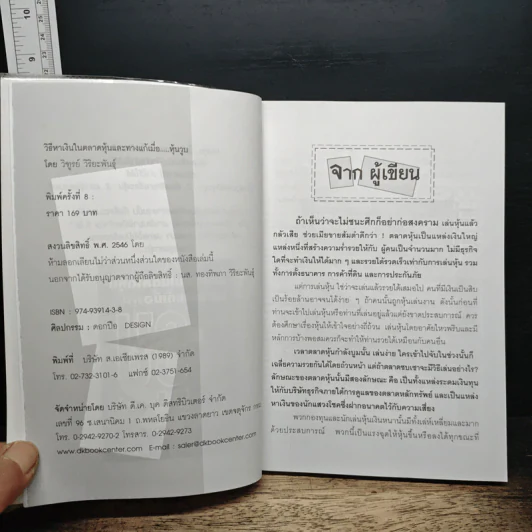 วิธีหาเงินในตลาดหุ้นและทางแก้เมื่อ.....หุ้นวูบ
โดย วิฑูรย์ วิริยะพันธุ์
พิมพ์ครั้งที่ 8 :
ราคา 169 บาท
สงวนลิขสิทธิ์ พ.ศ. 2546 โดย
ห้ามลอกเลียนไม่ว่าส่วนหนึ่งส่วนใดของหนังสือเล่มนี้
นอกจากได้รับอนุญาตจากผู้ถือลิขสิทธิ์ : นส. ทองทิพภา วิริยะพันธุ์
ISBN : 974-93914-3-8
ศิลปกรรม : ดอกป๊อ DESIGN
พิมพ์ที่ บริษัท ส.เอเซียเพรส (1989) จำกัด
โทร. 02-732-3101-6 แฟกซ์ 02-3751-654
จัดจำหน่ายโดย บริษัท ดี.เค. บุค ดิสทริบิวเตอร์ จำกัด
เลขที่ 96 ซ.เสนานิคม 1 ถ.พหลโยธิน แขวงลาดยาว เขตจตุจักร
โทร. 0-2942-9270-2 โทรสาร. 0-2942-9273
www.dkbookcenter.com E-mail : saler@dkbookcenter.com
จาก ผู้เขียน
ถ้าเห็นว่าจะไม่ชนะศึกก็อย่าก่อสงคราม เล่นหุ้นแล้ว
กลัวเสีย ช่วยเมียขายส้มตำดีกว่า ! ตลาดหุ้นเป็นแหล่งเงินใหญ่
แหล่งหนึ่งที่สร้างความร่ำรวยให้กับ ผู้คนเป็นจำนวนมาก ไม่มีธุรกิจ
ใดที่จะทำเงินให้ได้มาก ๆ และรวยได้รวดเร็วเท่ากับการเล่นหุ้น รวม
ทั้งการตั้งธนาคาร การค้าที่ดิน และการประกันภัย
แต่การเล่นหุ้น ใช่ว่าจะเล่นรวยได้เสมอไป คนที่มีเงินเป็นสิบ
เป็นร้อยล้านอาจจนได้ง่าย ๆ ถ้าคนนั้นถูกหุ้นเล่นงาน ดังนั้นก่อนที่
ท่านจะเข้าไปเล่นหุ้นหรือท่านที่เล่นอยู่แล้วแต่ยังขาดประสบการณ์ ควร
ต้องศึกษาเรื่องหุ้นให้เข้าใจอย่างถี่ถ้วน เล่นหุ้นโดยอาศัยไหวพริบและมี
หลักการบ้างพอสมควรก็จะทำให้ท่านรวยได้เหมือนกับคนอื่น
เวลาตลาดหุ้นกำลังบูมนั้น เล่นง่าย ใครเข้าไปจับในช่วงนั้นก็
เฉลี่ยความรวยกันได้โดยถ้วนหน้า แต่ถ้าตลาดซบเซาจะมีวิธีเล่นอย่างไร?
ลักษณะของตลาดหุ้นนั้นมีสองลักษณะ คือ เป็นทั้งแหล่งระดมเงินทุน
ให้กับบริษัทธุรกิจภายใต้การดูแลของตลาดหลักทรัพย์ และเป็นแหล่ง
หาเงินของนักแสวงโชคซึ่งฝากอนาคตไว้กับความเสี่ยง
พวกกองทุนและนักเล่นหุ้นเงินหนานั้นมีทั้งเล่ห์เหลี่ยมและมาก
ด้วยประสบการณ์ พวกนี้เป็นแรงจูดให้หุ้นขึ้นหรือลงได้ทุกขณะที่